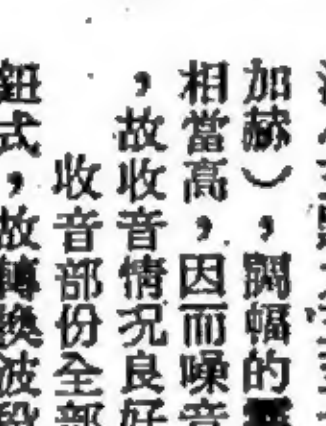 加赫），調幅的
相當高，因而噪音
，故收音情況良好
收音部份全部
鈕式，故轉換波段